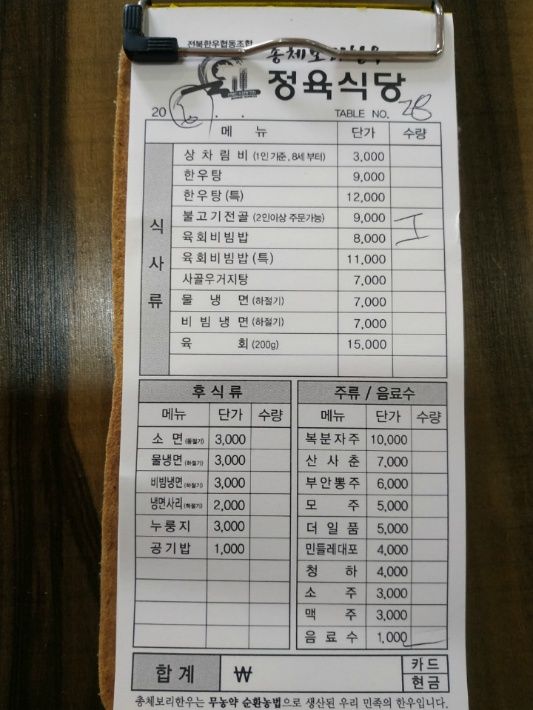 전북한우협동조합
총체보리한우
정육식당
20 . . TABLE NO. 28
메 뉴 단가 수량
식사류
상 차 림 비 (1인 기준, 8세 부터) 3,000
한우탕 9,000
한우탕 (특) 12,000
불고기전골 (2인이상 주문가능) 9,000
육회비빔밥 8,000
육회비빔밥 (특) 11,000
사골우거지탕 7,000
물 냉 면 (하절기) 7,000
비 빔 냉 면 (하절기) 7,000
육 회 (200g) 15,000
후 식 류
메뉴 단가 수량
소 면 (동절기) 3,000
물냉면 (하절기) 3,000
비빔냉면 (하절기) 3,000
냉면사리 (하절기) 2,000
누룽지 3,000
공기밥 1,000
주류 / 음료수
메뉴 단가 수량
복분자주 10,000
산 사 춘 7,000
부안뽕주 6,000
모 주 5,000
더 일 품 5,000
민들레대포 4,000
청 하 4,000
소 주 3,000
맥 주 3,000
음 료 수 1,000
합 계 ₩ 카 드
현 금
총체보리한우는 무농약 순환농법으로 생산된 우리 민족의 한우입니다.